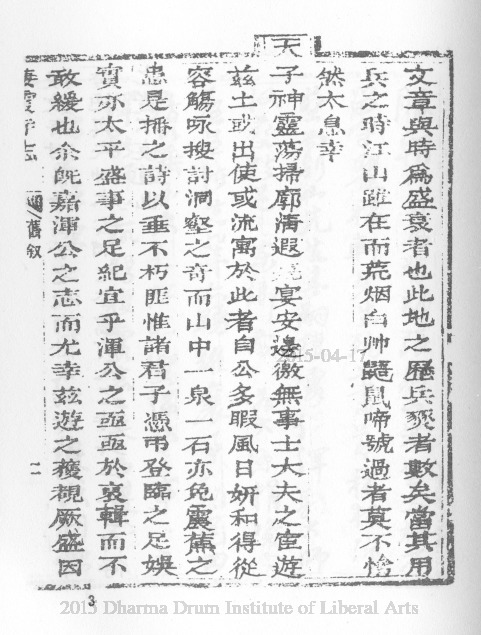 文章與時爲盛衰者也此地之歷兵燹者數矣當其用
兵之時江山雖在而荒烟白艸鼯鼠啼號過者莫不愴
然太息幸
天子神靈蕩掃廓淸遐宴安邊徼無事士大夫之宦遊
兹土或出使或流寓於此者自公多暇風日妍和得從
容觴咏搜討洞壑之奇而山中一泉一石亦免震蕉之
患是播之詩以垂不朽匪惟諸君子憑弔登臨之足娛
實亦太平盛事之足紀宜乎渾公之亟亟於裒輯而不
敢緩也余旣嘉渾公之志而尤幸兹遊之穫覩厥盛因
棲霞寺志 舊叙 二
3
2015-04-17
2015 Dharma Drum Institute of Liberal Arts